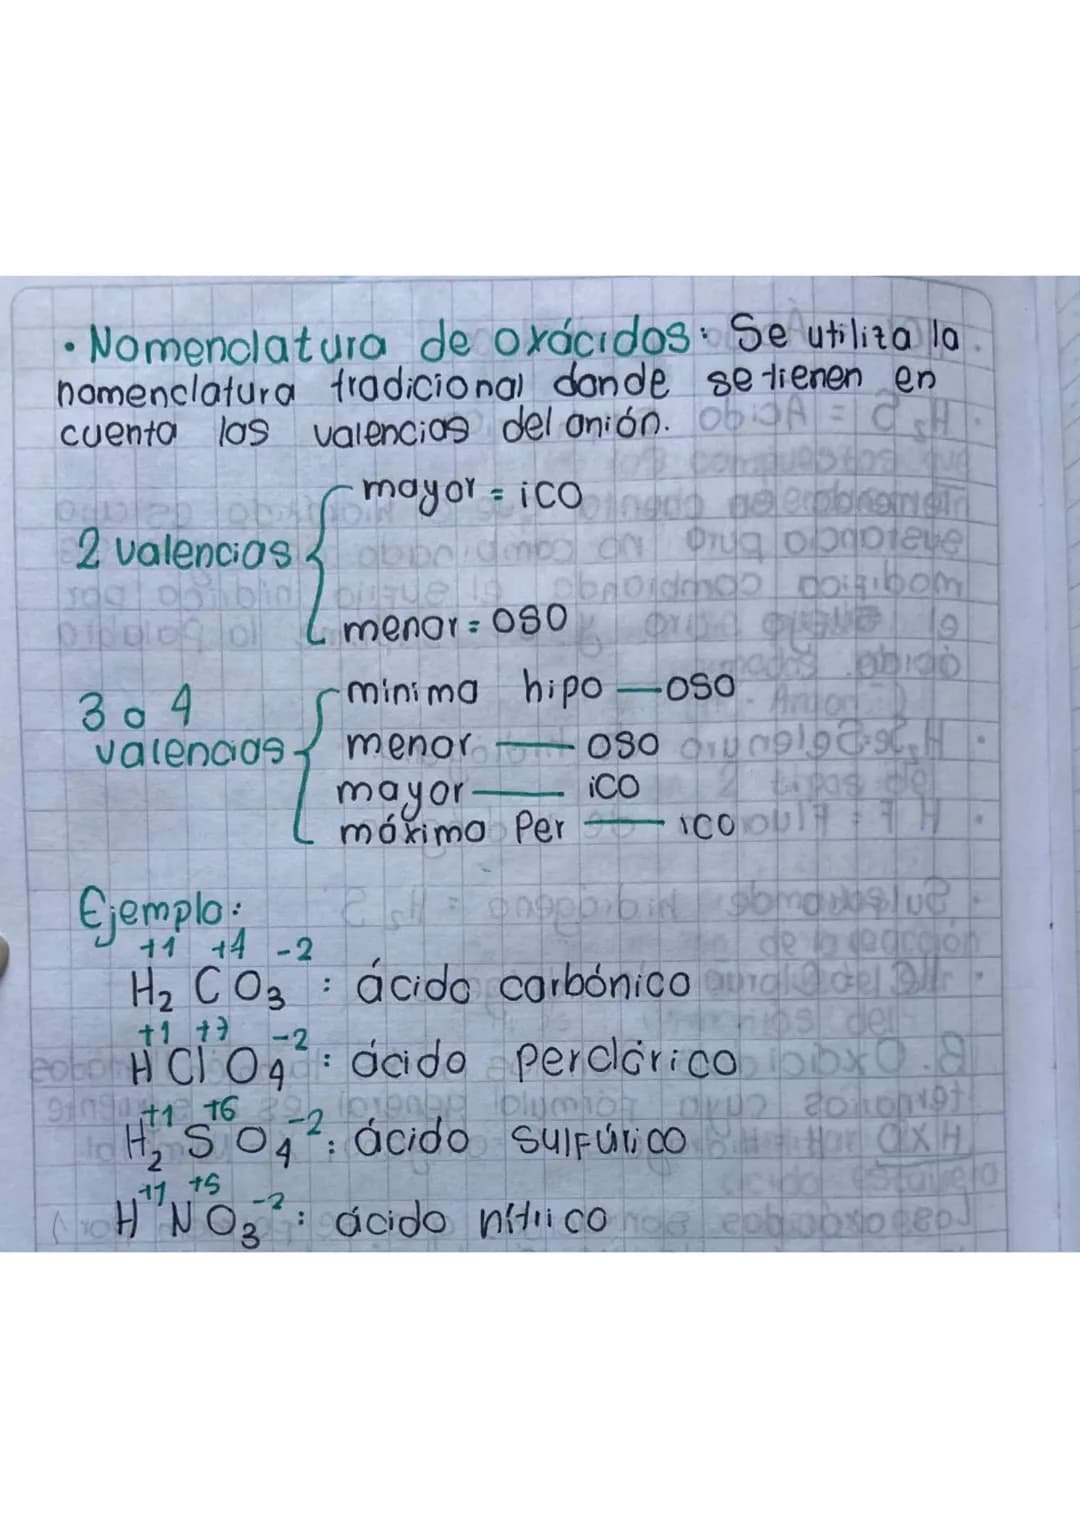 · Nomenclatura de oxácidos: Se utiliza la
nomenclatura tradicional donde se tienen en
cuenta las valencias del anión.
2 valencias
mayor = ico
menor = oso
3 o 4
valencias
minima hipo — oso
menor — oso
mayor — ico
máxima Per — ico
Ejemplo:
+1 +4 -2
H₂ CO₃ : ácido carbónico
+1 +7 -2
H Cl O₄ : ácido perclórico
+1 +6 -2
H₂ S O₄ : ácido sulfúrico
+1 +5 -2
H N O₃ : ácido nítrico